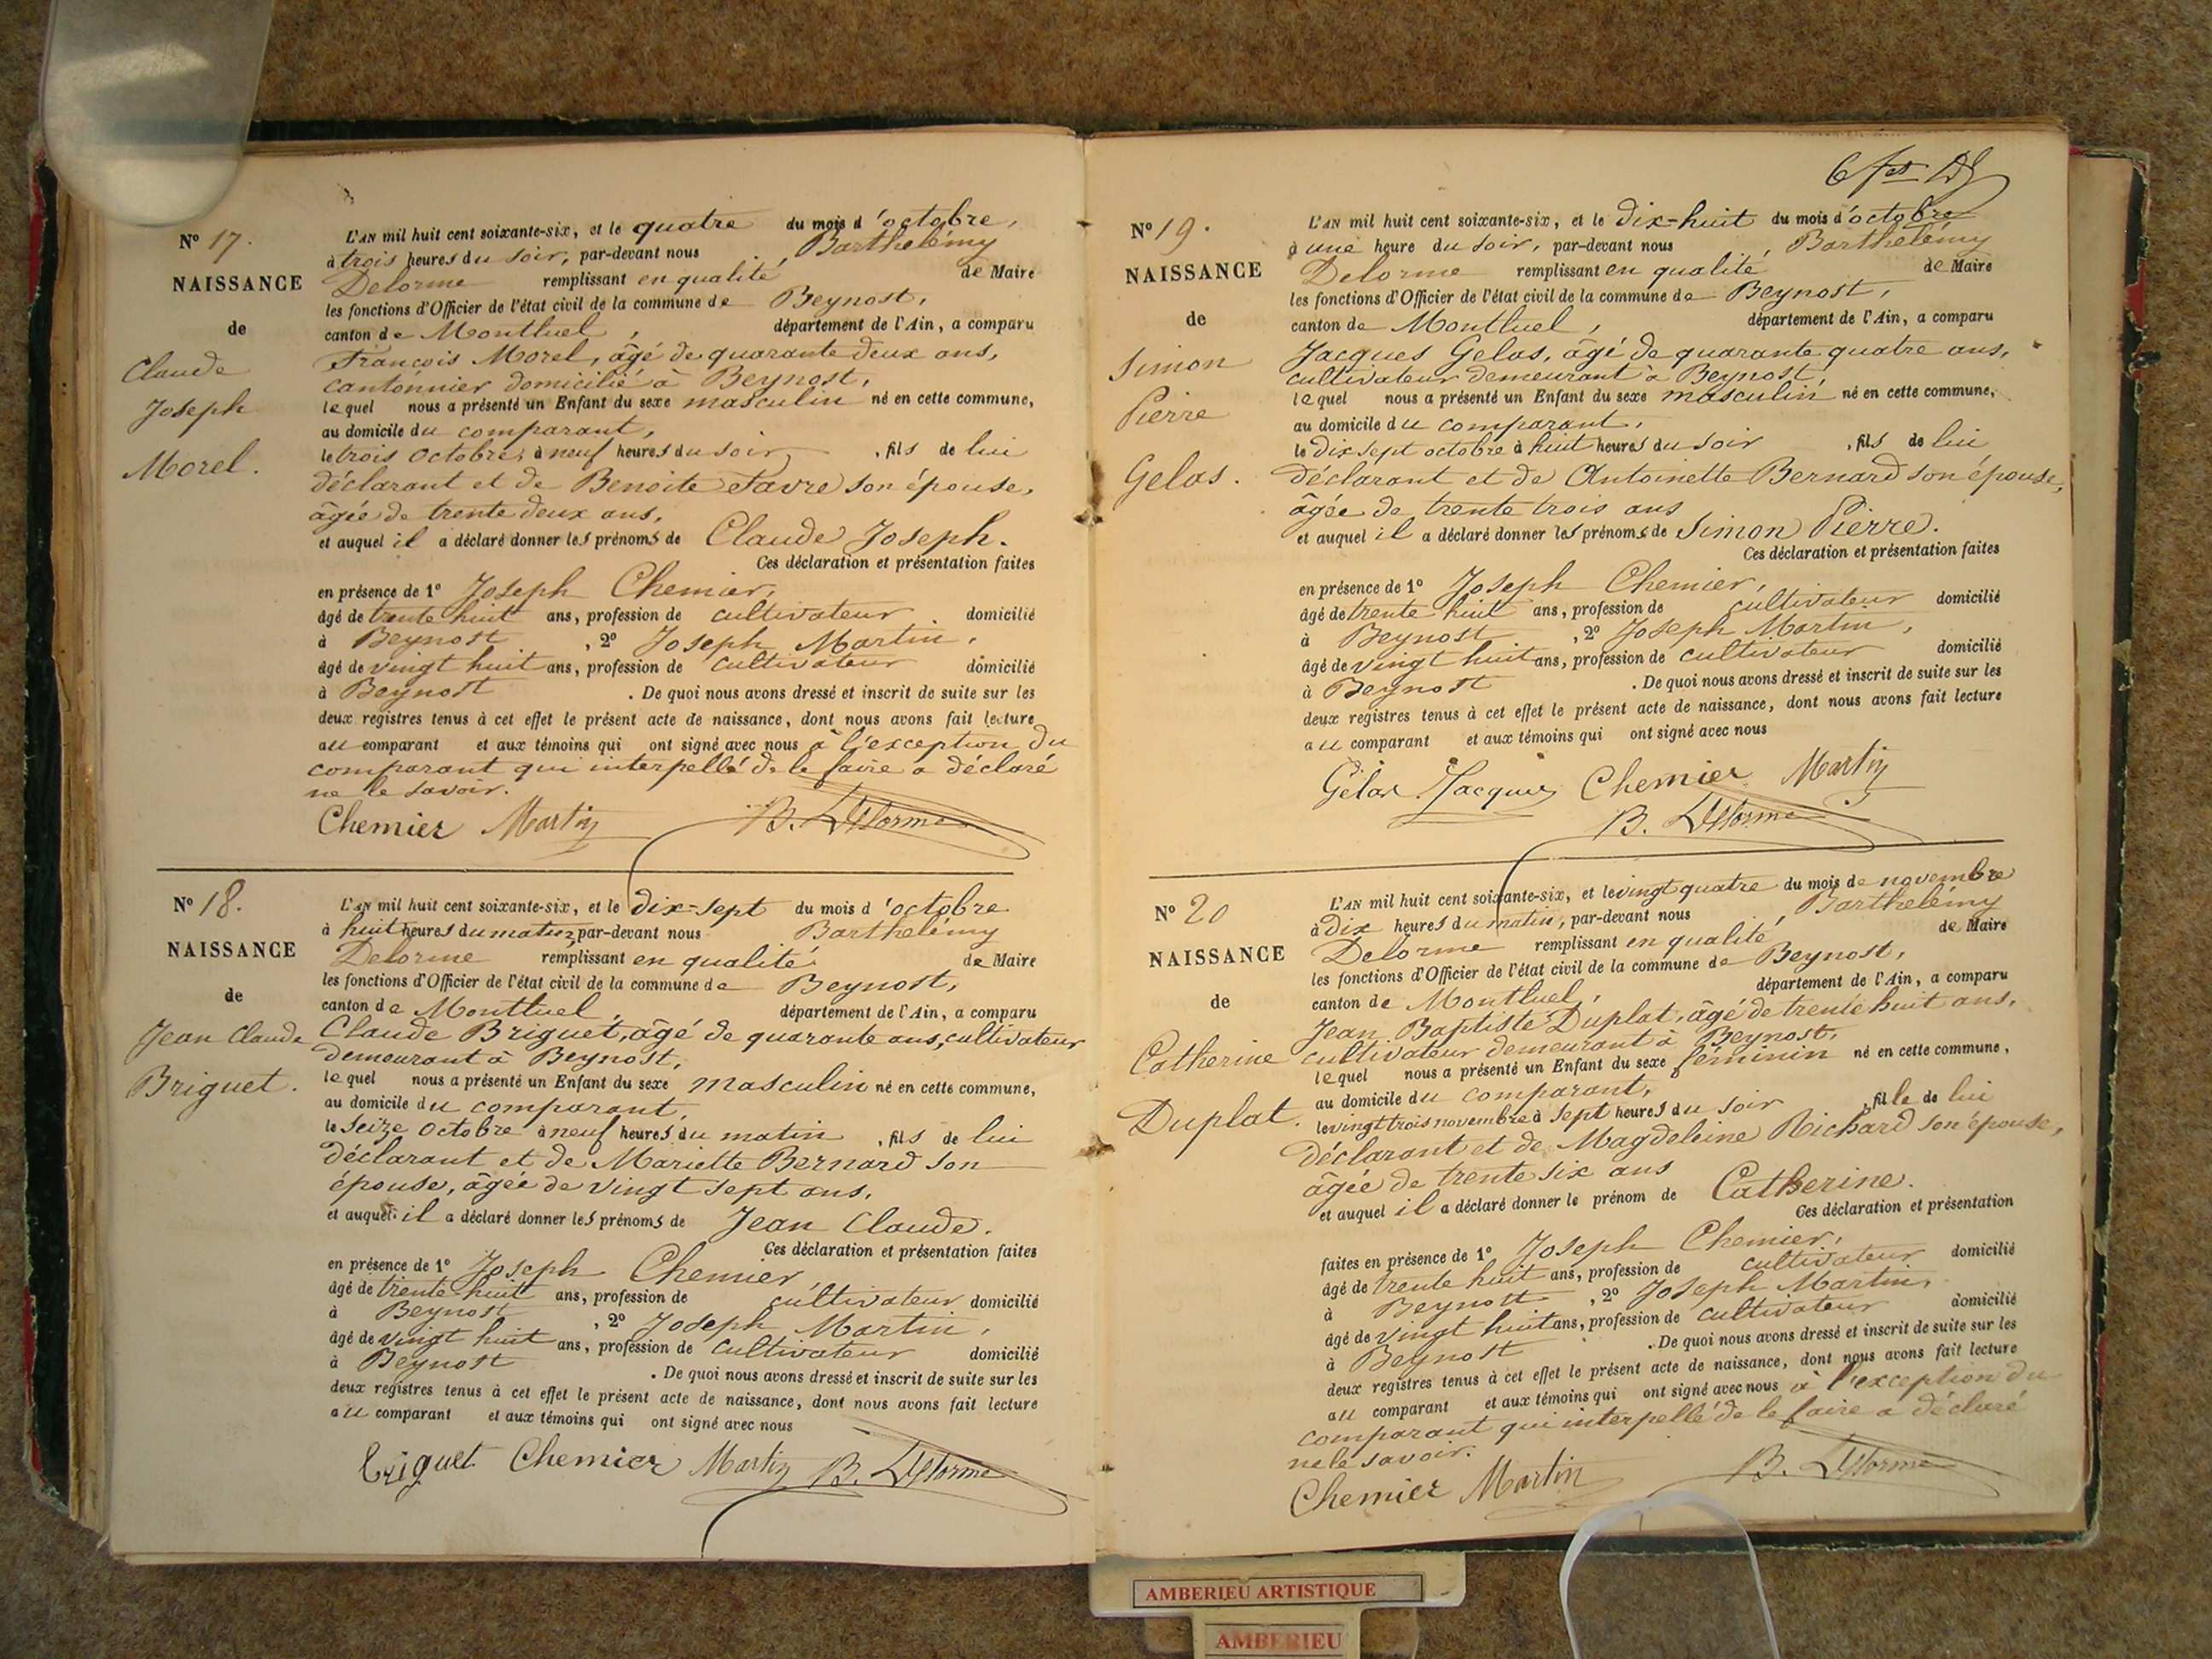 Nº 17.
NAISSANCE
de
Claude
Joseph
Morel.
L'AN mil huit cent soixante-six, et le quatre du mois d'octobre,
à trois heures du soir, par-devant nous, Barthélémy
Delorme remplissant en qualité de Maire
les fonctions d'Officier de l'état civil de la commune de Beynost,
canton de Montluel, département de l'Ain, a comparu
François Morel, âgé de quarante deux ans,
cantonnier domicilié à Beynost,
lequel nous a présenté un Enfant du sexe masculin né en cette commune,
au domicile du comparant,
le trois octobre, à neuf heures du soir, fils de lui
déclarant et de Benoite Favre son épouse,
âgée de trente deux ans,
et auquel il a déclaré donner les prénoms de Claude Joseph.
Ces déclaration et présentation faites
en présence de 1º Joseph Chemier,
âgé de trente huit ans, profession de cultivateur domicilié
à Beynost, 2º Joseph Martin,
âgé de vingt huit ans, profession de cultivateur domicilié
à Beynost. De quoi nous avons dressé et inscrit de suite sur les
deux registres tenus à cet effet le présent acte de naissance, dont nous avons fait lecture
au comparant et aux témoins qui ont signé avec nous à l'exception du
comparant qui interpellé de le faire a déclaré
ne le savoir.
Chemier Martin B. Delorme
Nº 18.
NAISSANCE
de
Jean Claude
Briguet.
L'AN mil huit cent soixante-six, et le dix-sept du mois d'octobre
à huit heures du matin, par-devant nous Barthélémy
Delorme remplissant en qualité de Maire
les fonctions d'Officier de l'état civil de la commune de Beynost,
canton de Montluel, département de l'Ain, a comparu
Claude Briguet, âgé de quarante ans, cultivateur
demeurant à Beynost,
lequel nous a présenté un Enfant du sexe masculin né en cette commune,
au domicile du comparant,
le seize octobre à neuf heures du matin, fils de lui
déclarant et de Mariette Bernard son
épouse, âgée de vingt sept ans,
et auquel il a déclaré donner les prénoms de Jean Claude.
Ces déclaration et présentation faites
en présence de 1º Joseph Chemier,
âgé de trente huit ans, profession de cultivateur domicilié
à Beynost, 2º Joseph Martin,
âgé de vingt huit ans, profession de cultivateur domicilié
à Beynost. De quoi nous avons dressé et inscrit de suite sur les
deux registres tenus à cet effet le présent acte de naissance, dont nous avons fait lecture
au comparant et aux témoins qui ont signé avec nous
Briguet Chemier Martin B. Delorme
Nº 19.
NAISSANCE
de
Simon
Pierre
Gelas.
L'AN mil huit cent soixante-six, et le dix-huit du mois d'octobre
à une heure du soir, par-devant nous, Barthélémy
Delorme remplissant en qualité de Maire
les fonctions d'Officier de l'état civil de la commune de Beynost,
canton de Montluel, département de l'Ain, a comparu
Jacques Gelas, âgé de quarante quatre ans,
cultivateur demeurant à Beynost,
lequel nous a présenté un Enfant du sexe masculin né en cette commune,
au domicile du comparant,
le dix sept octobre à huit heures du soir, fils de lui
déclarant et de Antoinette Bernard son épouse,
âgée de trente trois ans
et auquel il a déclaré donner les prénoms de Simon Pierre.
Ces déclaration et présentation faites
en présence de 1º Joseph Chemier,
âgé de trente huit ans, profession de cultivateur domicilié
à Beynost, 2º Joseph Martin,
âgé de vingt huit ans, profession de cultivateur domicilié
à Beynost. De quoi nous avons dressé et inscrit de suite sur les
deux registres tenus à cet effet le présent acte de naissance, dont nous avons fait lecture
au comparant et aux témoins qui ont signé avec nous
Gélas Jacques Chemier Martin
B. Delorme
Nº 20
NAISSANCE
de
Catherine
Duplat.
L'AN mil huit cent soixante-six, et le vingt quatre du mois de novembre
à dix heures du matin, par-devant nous, Barthélémy
Delorme remplissant en qualité de Maire
les fonctions d'Officier de l'état civil de la commune de Beynost,
canton de Montluel, département de l'Ain, a comparu
Jean Baptiste Duplat, âgé de trente huit ans,
cultivateur demeurant à Beynost,
lequel nous a présenté un Enfant du sexe féminin né en cette commune,
au domicile du comparant,
le vingt trois novembre à sept heures du soir, fille de lui
déclarant et de Magdeleine Richard son épouse,
âgée de trente six ans
et auquel il a déclaré donner le prénom de Catherine.
Ces déclaration et présentation
faites en présence de 1º Joseph Chemier,
âgé de trente huit ans, profession de cultivateur domicilié
à Beynost, 2º Joseph Martin,
âgé de vingt huit ans, profession de cultivateur domicilié
à Beynost. De quoi nous avons dressé et inscrit de suite sur les
deux registres tenus à cet effet le présent acte de naissance, dont nous avons fait lecture
au comparant et aux témoins qui ont signé avec nous à l'exception du
comparant qui interpellé de le faire a déclaré
ne le savoir.
Chemier Martin B. Delorme
AMBERIEU ARTISTIQUE
AMBERIEU